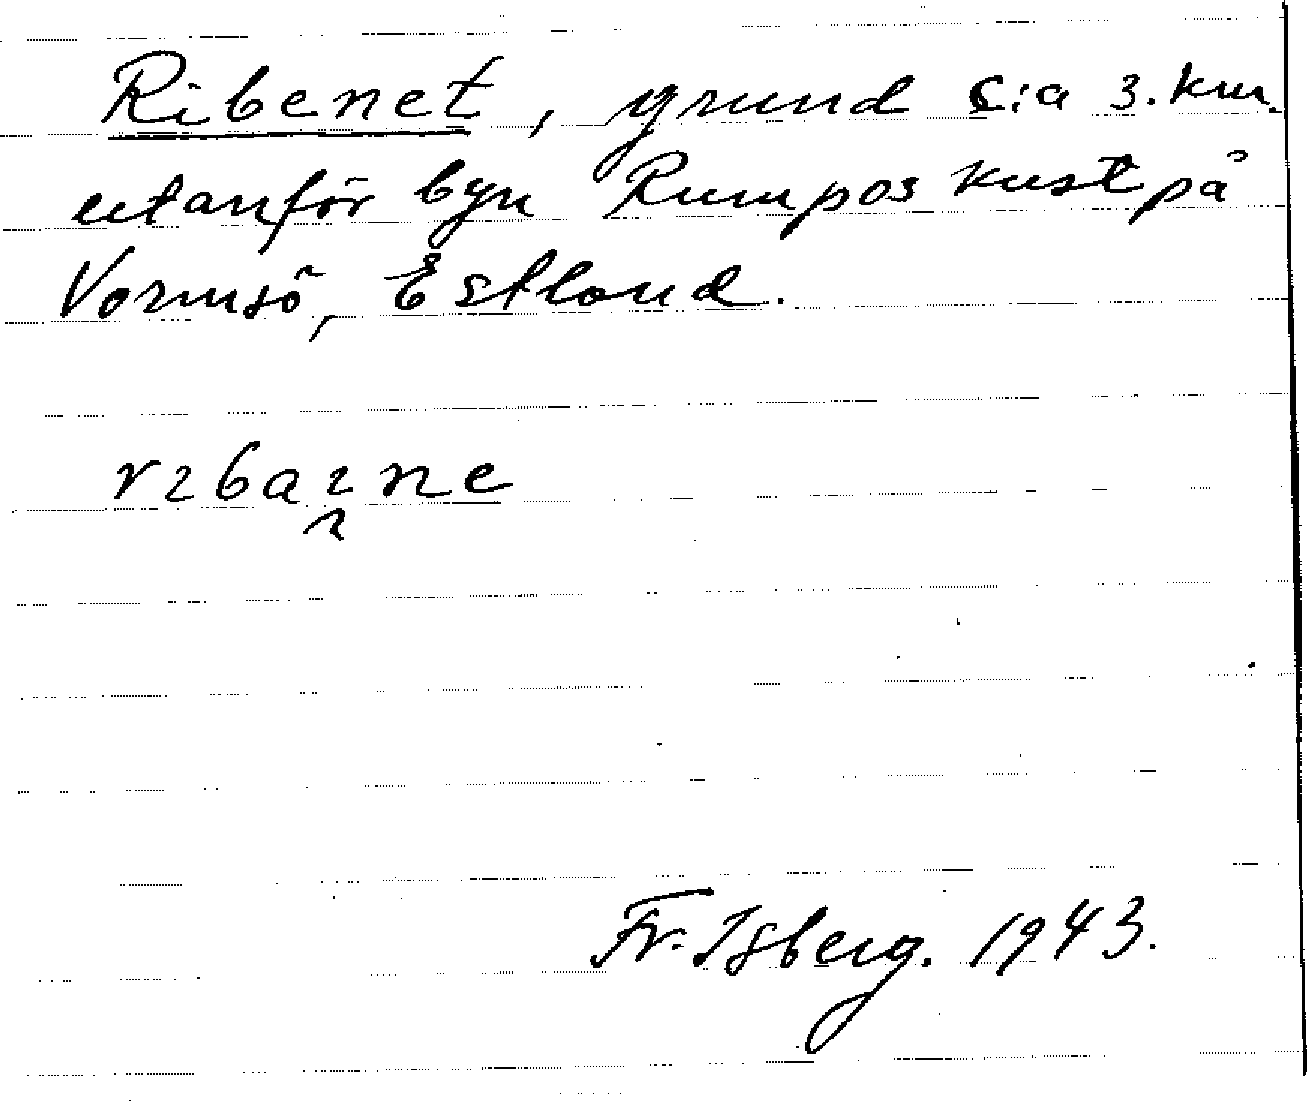 Ribenet, grund c:a 3. km.
utanför byn Rumpos kust på
Vormsö, Estland.
Fr. Isberg. 1943.